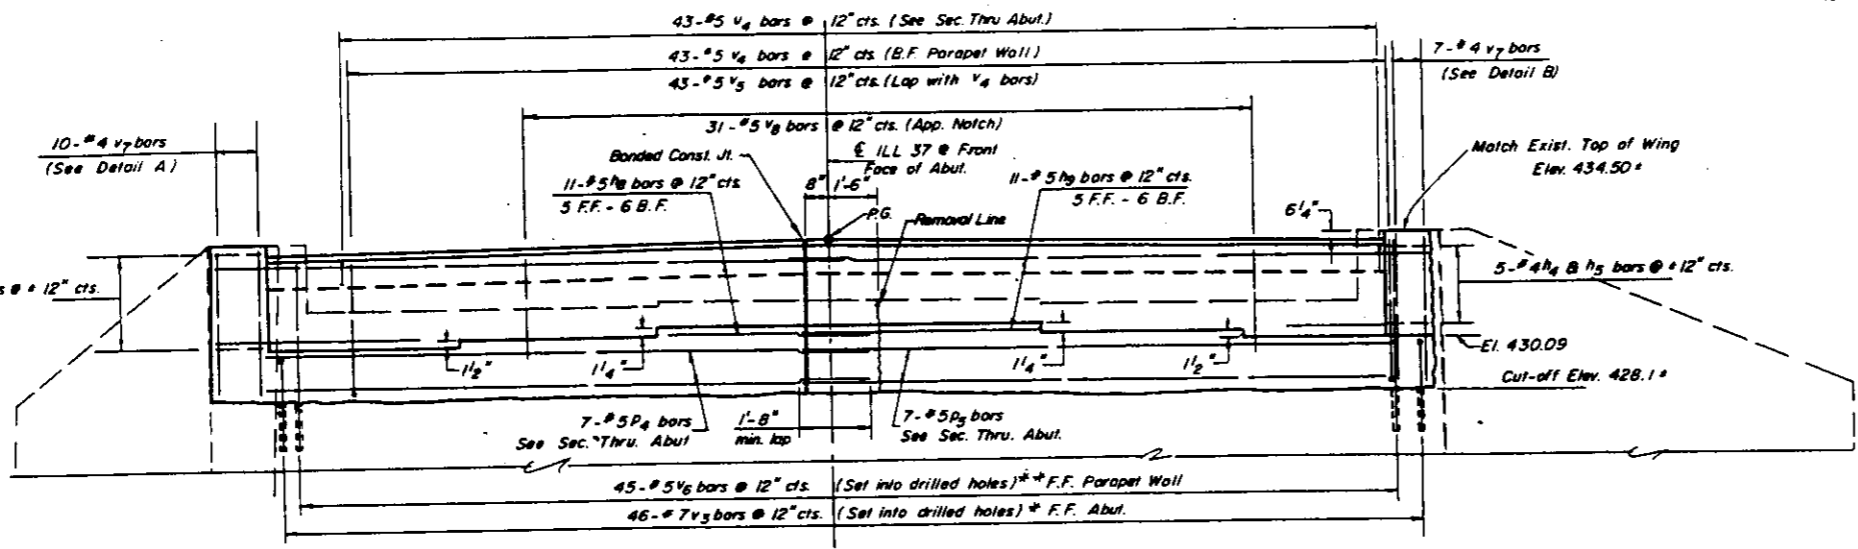 43-#5 v4 bars @ 12" cts. (See Sec. Thru Abut.)
43-#5 v4 bars @ 12" cts. (B.F. Parapet Wall)
43-#5 v5 bars @ 12" cts. (Lap with v4 bars)
7-#4 v7 bars
(See Detail B)
31-#5 v8 bars @ 12" cts. (App. Notch)
10-#4 v7 bars
(See Detail A)
Bonded Const. Jt.
℄ ILL 37 @ Front
Face of Abut.
Match Exist. Top of Wing
Elev. 434.50±
11-#5 h8 bars @ 12" cts.
5 F.F. - 6 B.F.
8" 1'-6"
11-#5 h9 bars @ 12" cts.
5 F.F. - 6 B.F.
P.G.
Removal Line
6¼"
s @ ± 12" cts.
5-#4 h4 & h5 bars @ ±12" cts.
1½"
1¼"
1¼"
1½"
El. 430.09
Cut-off Elev. 428.1±
7-#5 p4 bars
See Sec. Thru. Abut
1'-8"
min. lap
7-#5 p5 bars
See Sec. Thru. Abut.
45-#5 v6 bars @ 12" cts. (Set into drilled holes)** F.F. Parapet Wall
46-#7 v3 bars @ 12" cts. (Set into drilled holes)* F.F. Abut.